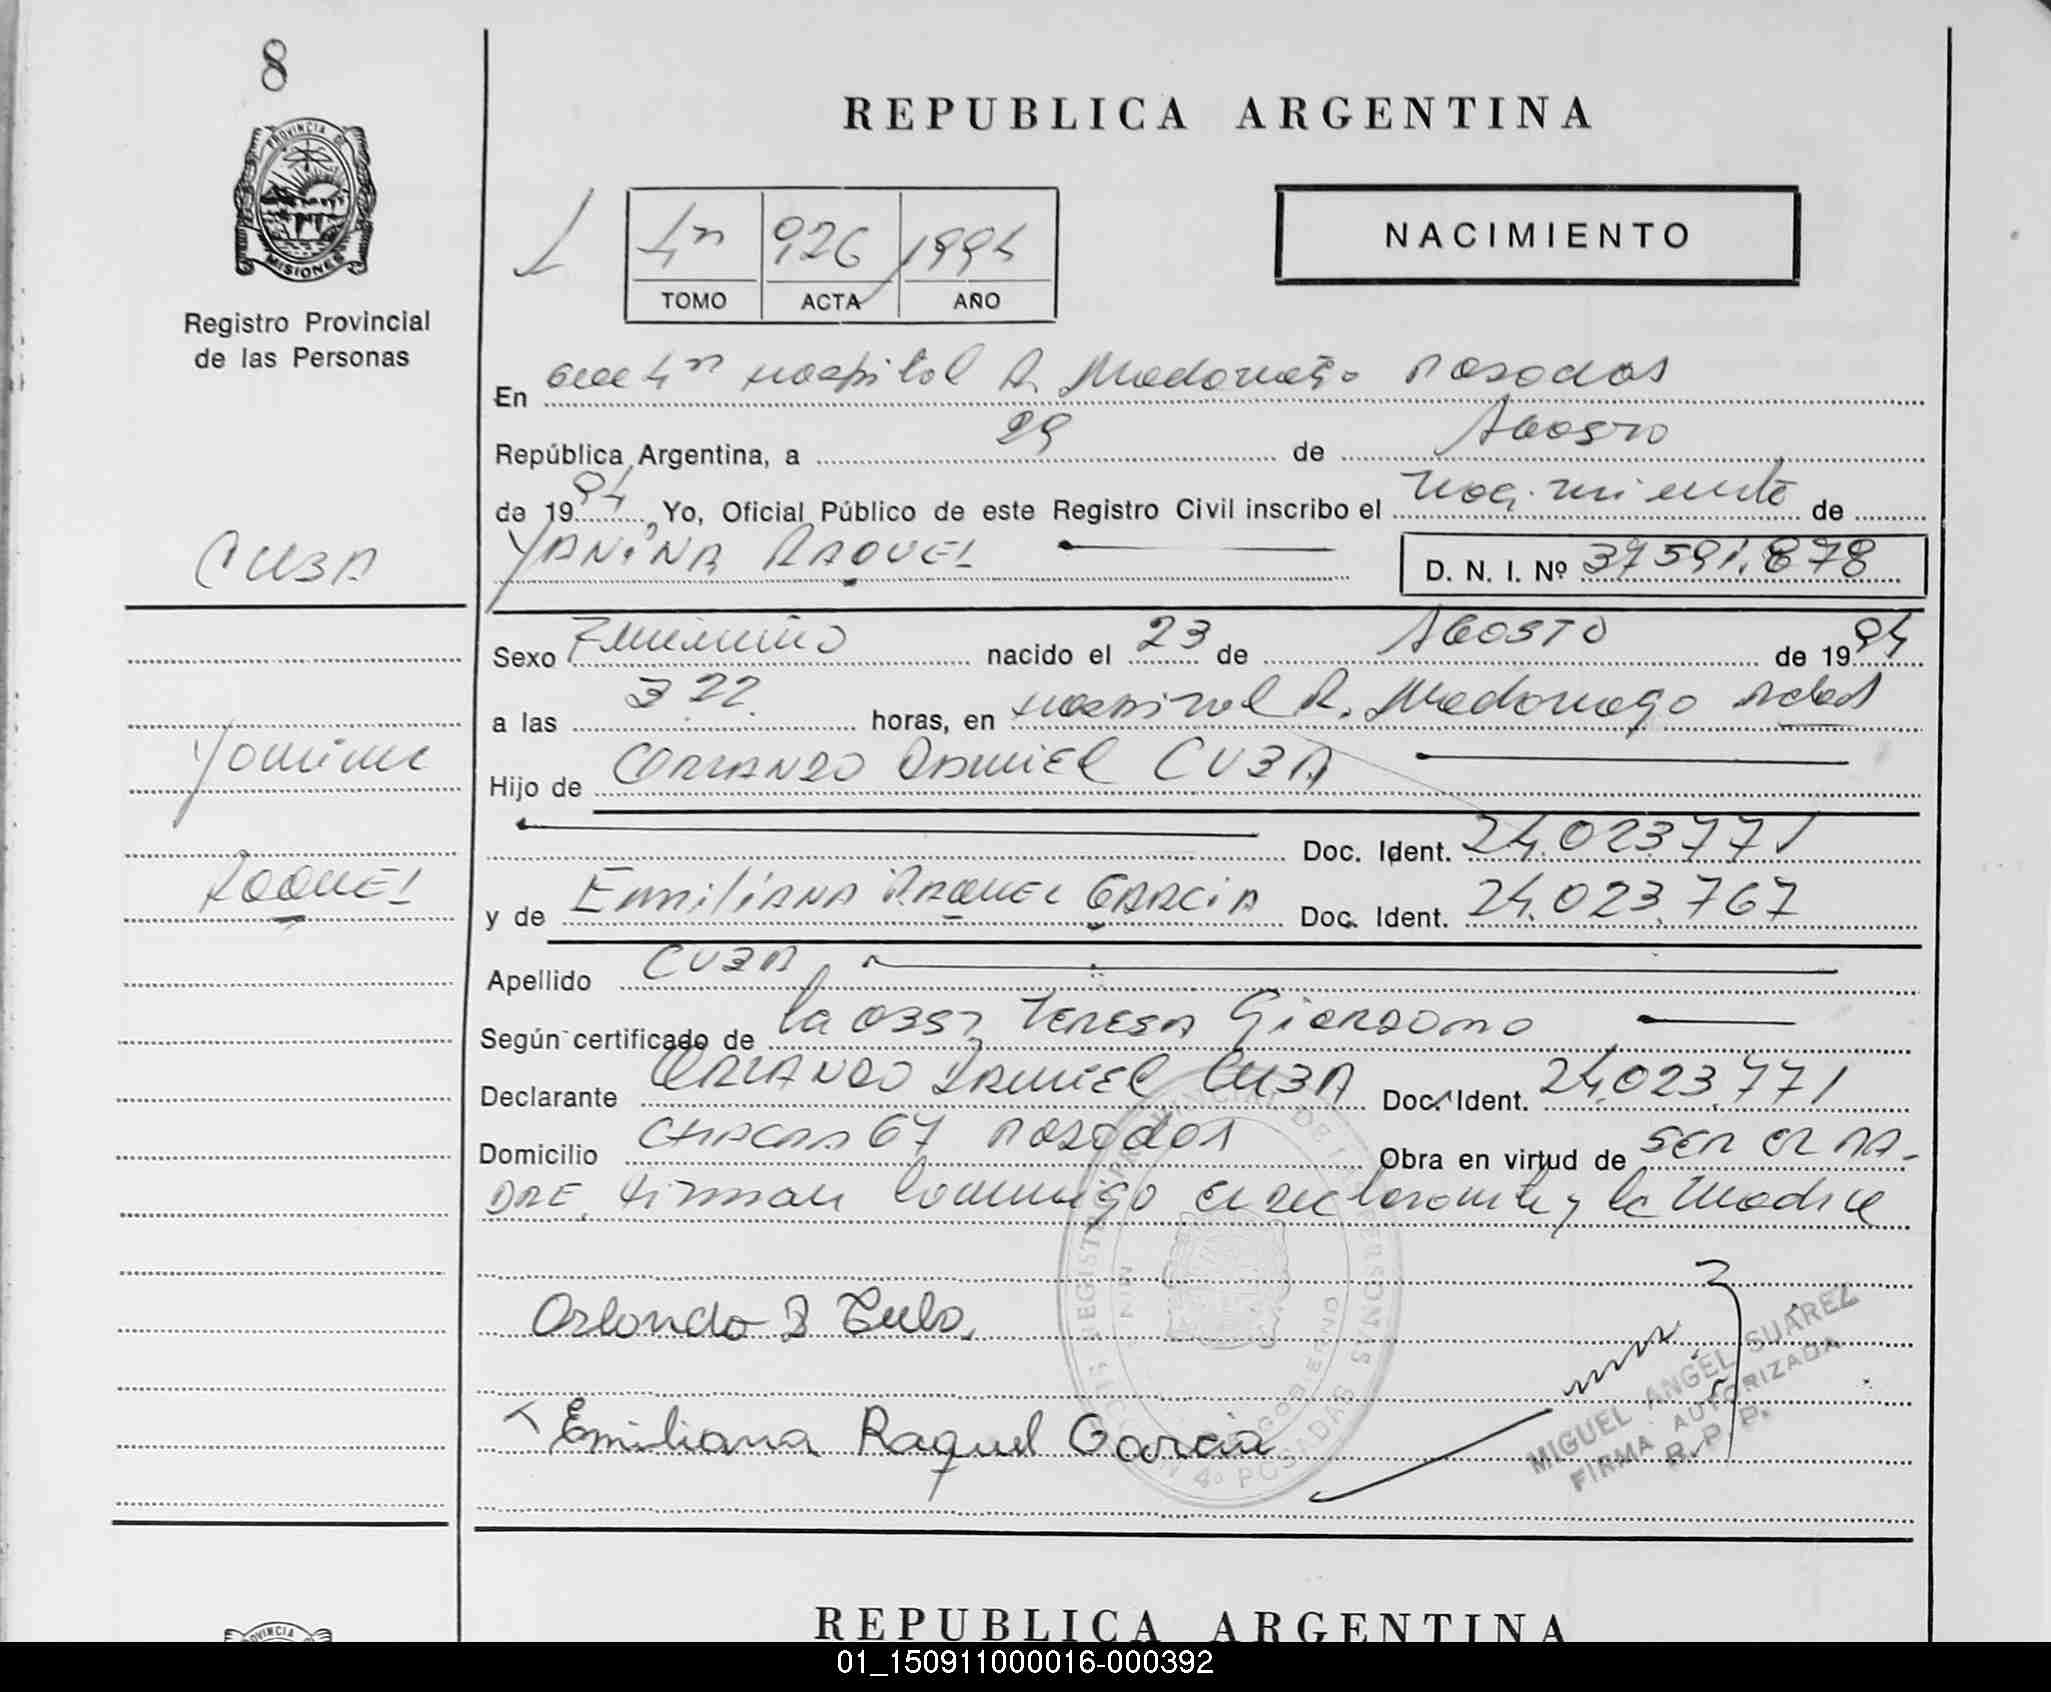 8
REPUBLICA ARGENTINA
PROVINCIA DE
MISIONES
Registro Provincial
de las Personas
4ª 926 1994
TOMO ACTA AÑO
NACIMIENTO
En Secc 4ª Hospital R. Madariaga Posadas
República Argentina, a 29 de Agosto
de 1994, Yo, Oficial Público de este Registro Civil inscribo el nacimiento de
YANINA RAQUEL D. N. I. Nº 37591.878
CUBA
Sexo Femenino nacido el 23 de Agosto de 1994
a las 3 22 horas, en Hospital R. Madariaga Pdas
Yanina
Hijo de ORLANDO DANIEL CUBA
Doc. Ident. 24.023.771
Raquel
y de Emiliana RAQUEL GARCIA Doc. Ident. 24.023.767
Apellido CUBA
Según certificado de la Obst Teresa
Declarante ORLANDO DANIEL CUBA Doc. Ident. 24.023.771
Domicilio Posadas Obra en virtud de SER EL PA-
DRE. Firman conmigo el declarante y la Madre
Orlando D Cuba
Emiliana Raquel Garcia
REGISTRO PROVINCIAL DE LAS PERSONAS
4ª POSADAS
MIGUEL ANGEL SUAREZ
FIRMA AUTORIZADA
R. P. P.
REPUBLICA ARGENTINA
01_150911000016-000392